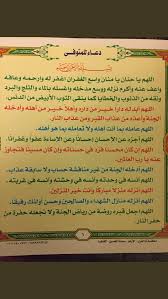 دعاء للمتوفى
اللهم يا حنان يا منان يا واسع الغفران اغفر له وارحمه وعافه
واعف عنه وأكرم نزله ووسع مدخله واغسله بالماء والثلج والبرد
ونقه من الذنوب والخطايا كما ينقى الثوب الأبيض من الدنس
اللهم أبدله دارا خيرا من داره وأهلا خيرا من أهله وأدخله
الجنة وأعذه من عذاب القبر ومن عذاب النار
اللهم عامله بما أنت أهله ولا تعامله بما هو أهله
اللهم اجزه عن الإحسان إحسانا وعن الإساءة عفوا وغفرانا
اللهم إن كان محسنا فزد في حسناته وإن كان مسيئا فتجاوز
عنه يا رب العالمين
اللهم أدخله الجنة من غير مناقشة حساب ولا سابقة عذاب
اللهم آنسه في وحدته وفي وحشته وآنسه في غربته
اللهم أنزله منزلا مباركا وأنت خير المنزلين
اللهم أنزله منازل الشهداء والصالحين وحسن أولئك رفيقا
اللهم اجعل قبره روضة من رياض الجنة ولا تجعله حفرة من
حفر النار